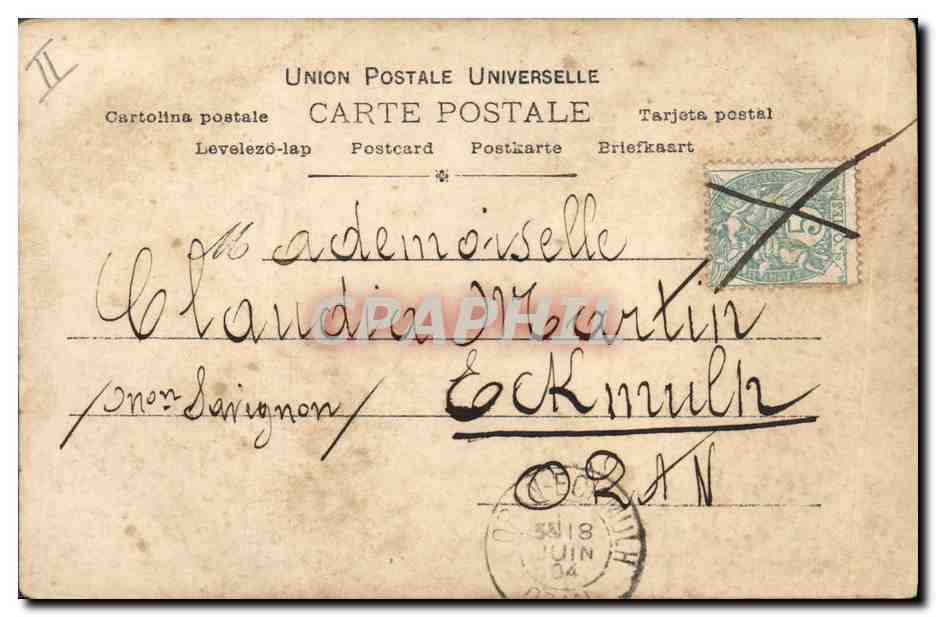 II
UNION POSTALE UNIVERSELLE
Cartolina postale CARTE POSTALE Tarjeta postal
Levelező-lap Postcard Postkarte Briefkaart
5
Mademoiselle
Claudia Martin
CPAPHIL
/ mon Savignon / Eckmulh
ORAN
ORAN-ECKMULH
18
JUIN
04
ORAN